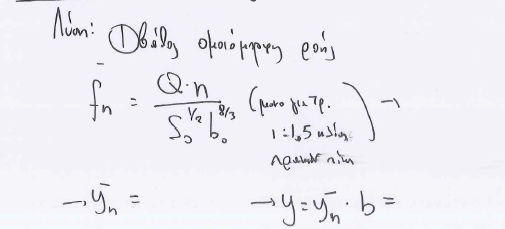 Λύση: ① Βάθος ομοιόμορφης ροής
f̄n = Q·n / S₀^1/2 b₀^8/3 (μονο για τρ. →
1:1,5 κλίση
πρανών
→ ȳn = → y = ȳn · b =